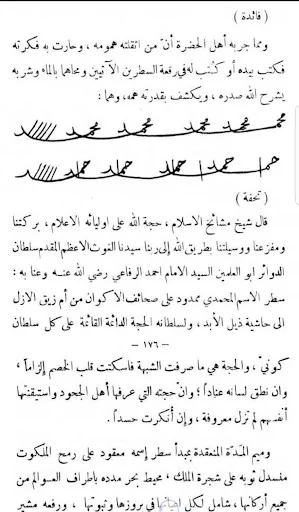 ( فائدة )
ومما جربه أهل الحضرة أن من اثقلته همومه ، وحارت به فكرته
فكتب بيده أو كُتب له في رقعة السطرين الآتيين ومحاهما بالماء وشربه
يشرح الله صدره ، ويكشف بقدرته همه، وهما :
محمد محمد محمد محمد محمد
حمد حمد حمد حمد حمد
( تحفة )
قال شيخ مشائخ الاسلام ، حجة الله على اوليائه الاعلام ، بركتنا
ومفزعنا ووسيلتنا بطريق الله إلى ربنا سيدنا الغوث الاعظم المقدم سلطان
الدوائر أبو العلمين السيد الامام احمد الرفاعي رضي الله عنه وعنا به :
سطر الاسم المحمدي ممدود على صحائف الاكوان من أم زيق الازل
الى حاشية ذيل الأبد ، ولسلطانه الحجة الدائمة القائمة على كل سلطان
– ١٧٦ –
كوني ، والحجة هي ما صرفت الشبهة فاسكتت قلب الخصم إلزاماً ،
وان نطق لسانه عناداً ؛ وان حجته التي عرفها أهل الجحود واستيقنتها
أنفسهم لم تزل معروفة ، وإن أنكرت حسداً .
وميم المدّة المنعقدة بمبدأ سطر إسمه معقود على رمح الملكوت
منسدل ثوبه على شجرة الملك ، محيط بحر مدده باطراف العوالم من
جميع أركانها ، شامل لكل في بروزها وثبوتها ، ورفعه مشير